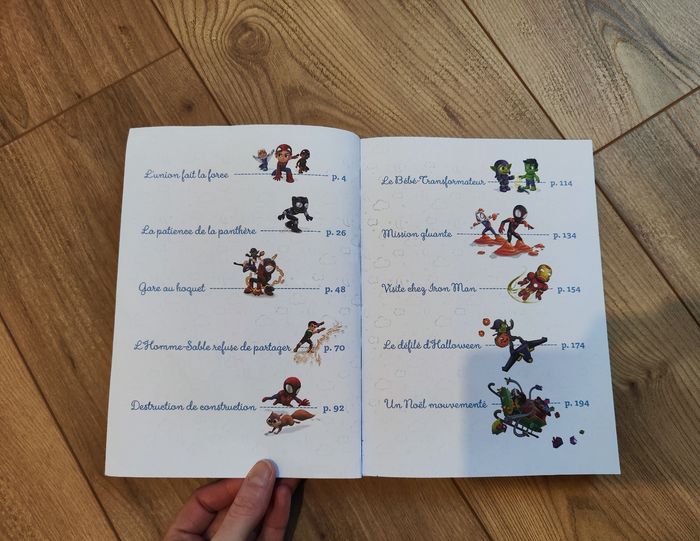 L'union fait la force p. 4
La patience de la panthère p. 26
Gare au hoquet p. 48
L'Homme-Sable refuse de partager p. 70
Destruction de construction p. 92
Le Bébé-Transformateur p. 114
Mission gluante p. 134
Visite chez Iron Man p. 154
Le défilé d'Halloween p. 174
Un Noël mouvementé p. 194